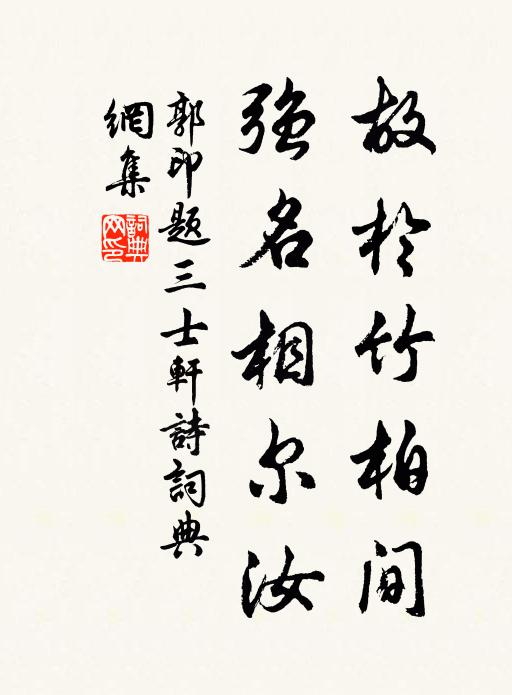 故於竹柏間
強名相尔汝
郭印題三士軒詩詞典
網集
詞典
网印